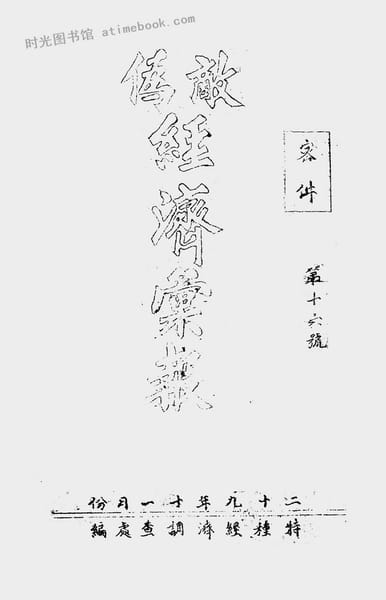 时光图书馆 atimebook.com
敵偽
經濟彙報
密件
第十六號
二十九年十一月份
特種經濟調查處編